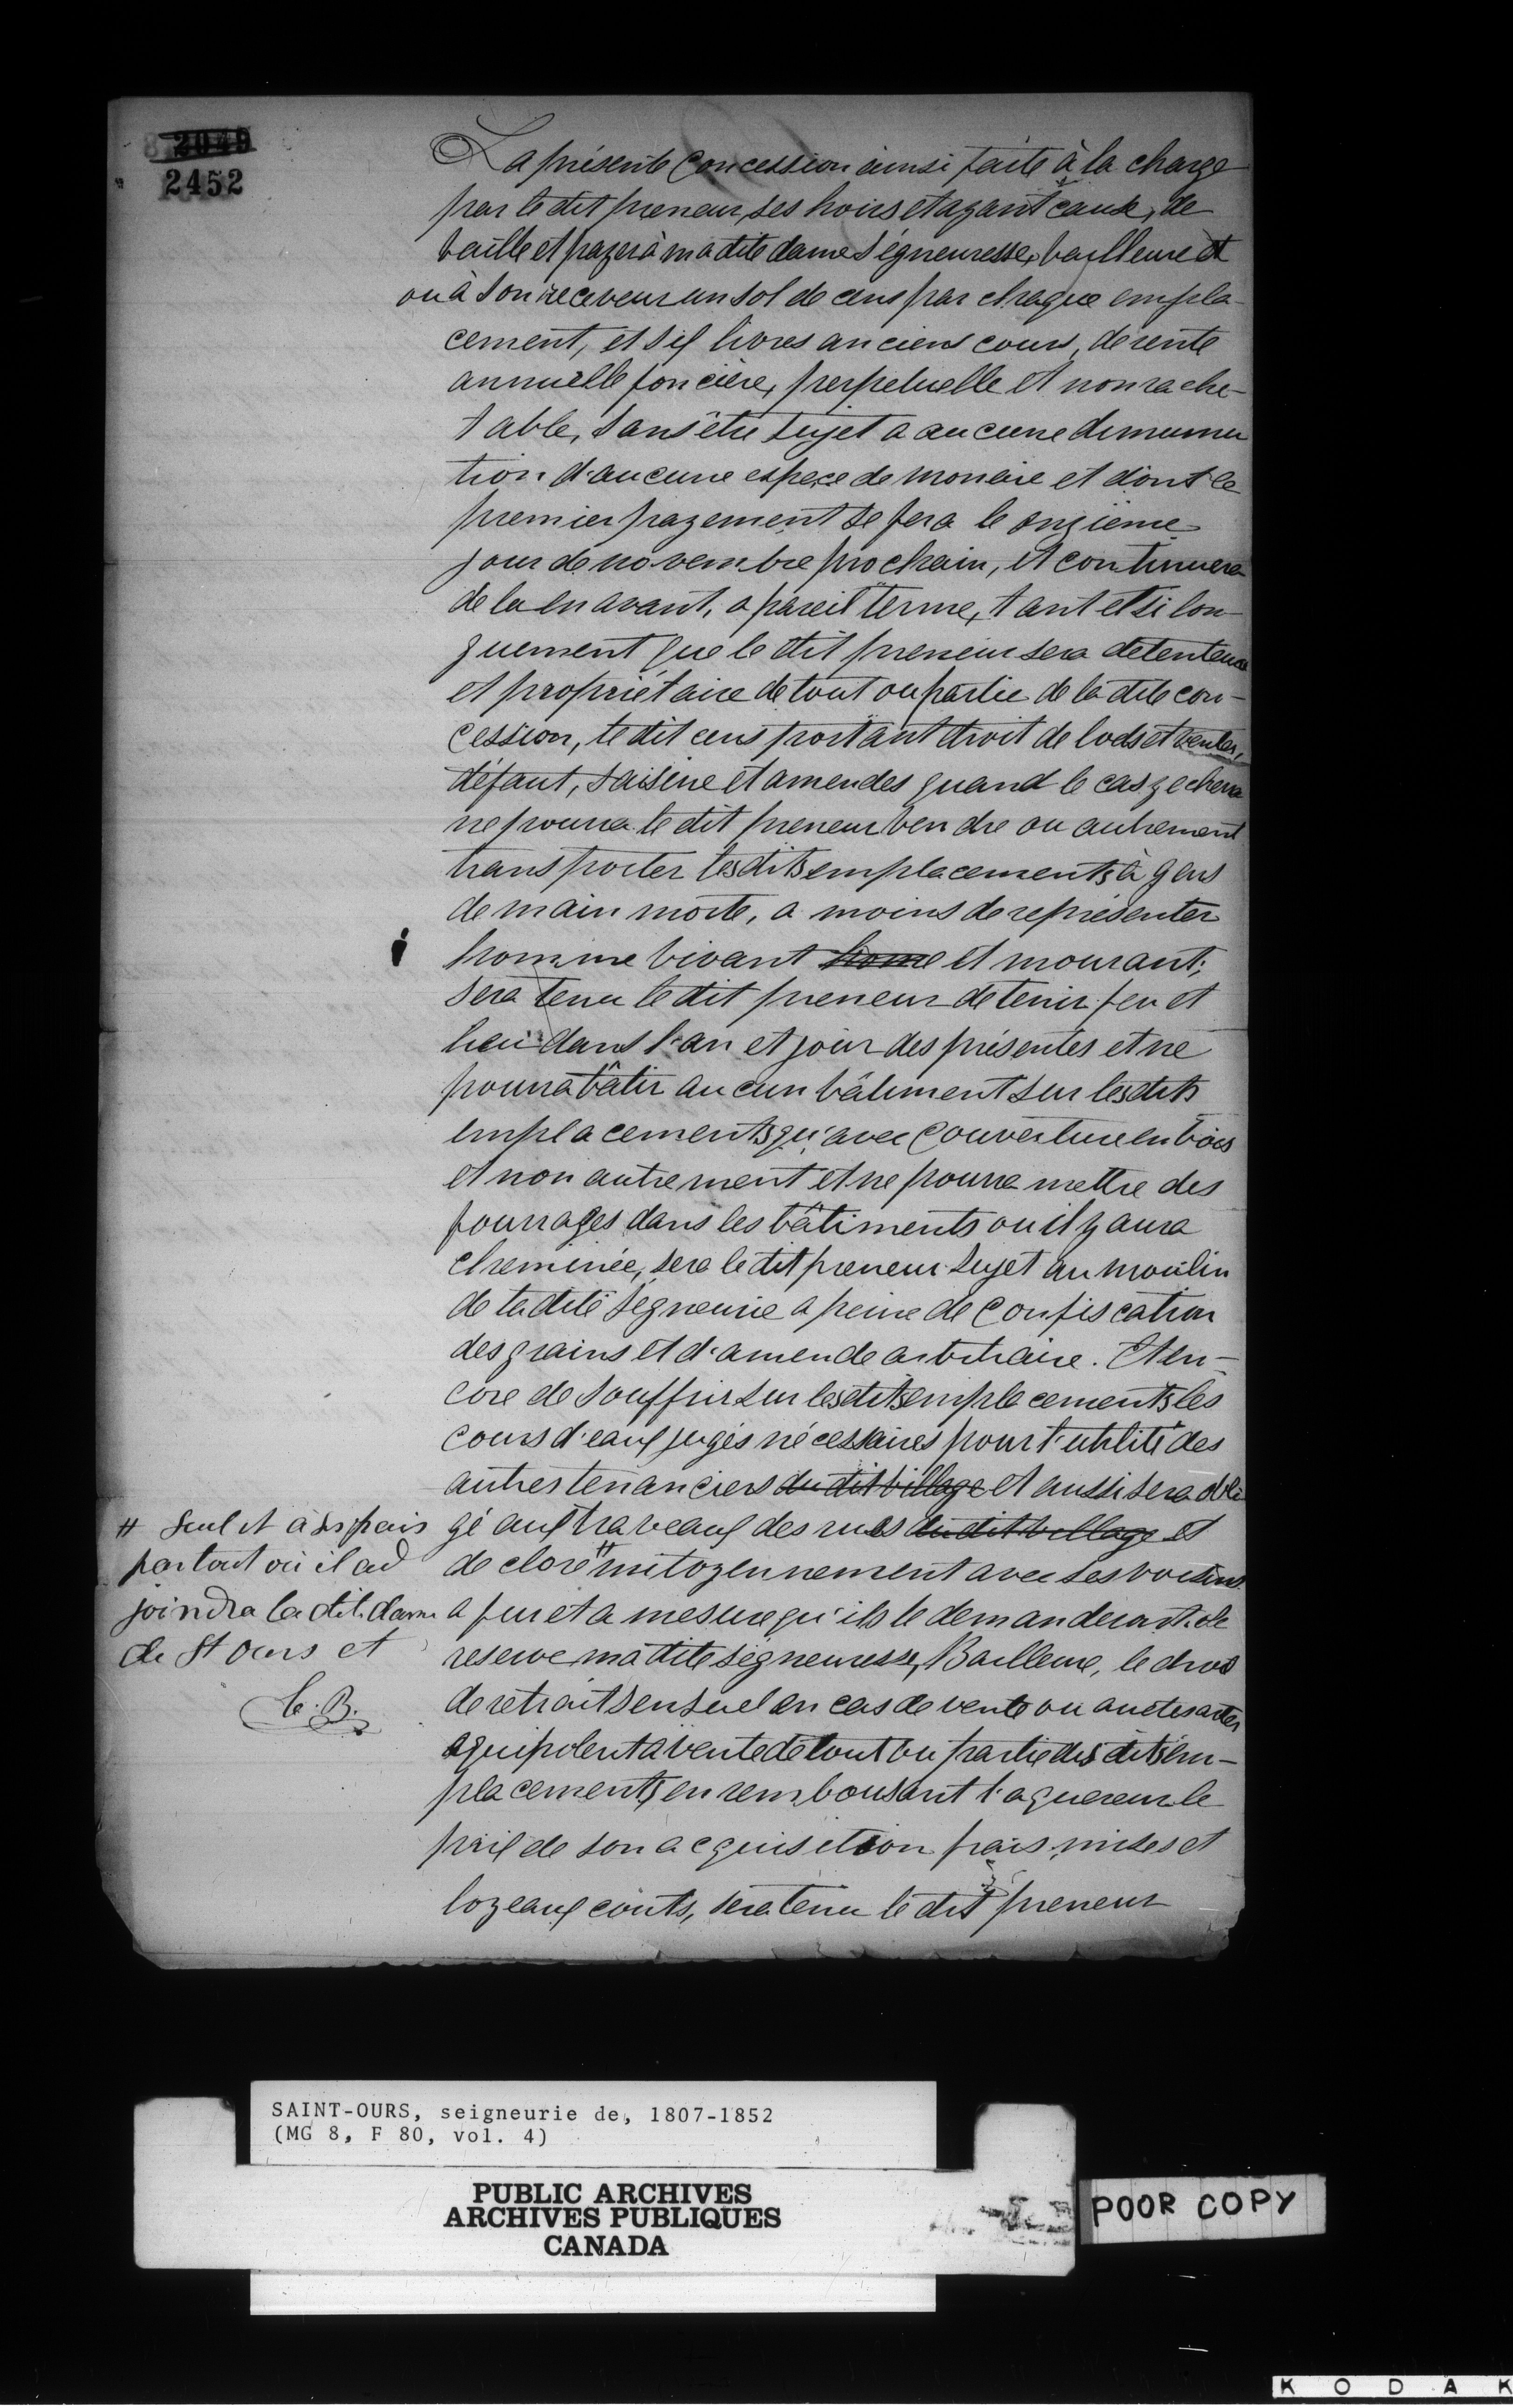 8 2049
2452
La présente Concession ainsi faite à la charge
par le dit preneur, ses hoirs et ayant cause, de
baille et payer à ma dite dame Ségneuresse, bailleure et
ou à son receveur un sol de cens par chaque empla-
cement, et six livres anciens cours, de rente
annuelle foncière, perpetuelle et non rache-
table, sans être sujet a aucune diminu
tion d'aucune espece de monaie et dont le
premier payement se fera le onzieme
jour de novembre prochain, et continuera
de la en avant, a pareil terme, tant et si lon-
guement que le dit preneur sera detenteur
et propriétaire de tout ou partie de la dite con-
cession, le dit cens portant droit de lods et ventes,
défaut, saisine et amendes quand le cas y echera
ne pourra le dit preneur vendre ou autrement
transporter lesdits emplacements à gens
de main morte, a moins de représenter
homme vivant home et mourant;
sera tenu le dit preneur de tenir feu et
lieu dans l'an et jour des présentes et ne
pourra bâtir aucun bâtiment sur lesdits
emplacements qu'avec couverture en bois
et non autrement et ne pourra mettre des
fourrages dans les bâtiments ou il y aura
cheminée, sera le dit preneur sujet au moulin
de la dite Ségneurie a peine de confiscation
des grains et d'amende arbitraire. Et en-
core de souffrir sur lesdits emplacements les
cours d'eaux jugés nécessaires pour l'utilité des
autres tenanciers du dit village et aussi sera obli
gé aux travaux des rues du dit village et
de clore # mitoyennement avec ses voisins
a fur et a mesure qu'ils le demanderont. de
reserve ma dite ségneuresse, Bailleure, le droit
de retrait sensuel en cas de vente ou autres actes
equipolent a vente de tout ou partie des dits em-
placements en remboursant l'aquereur le
prix de son acquisition frais mises et
loyeaux couts, sera tenu le dit preneur
# seul et à ses frais
partout où il ad
joindra la dite dame
de St Ours et
C. B.
SAINT-OURS, seigneurie de, 1807-1852
(MG 8, F 80, vol. 4)
PUBLIC ARCHIVES
ARCHIVES PUBLIQUES
CANADA
POOR COPY
KODAK